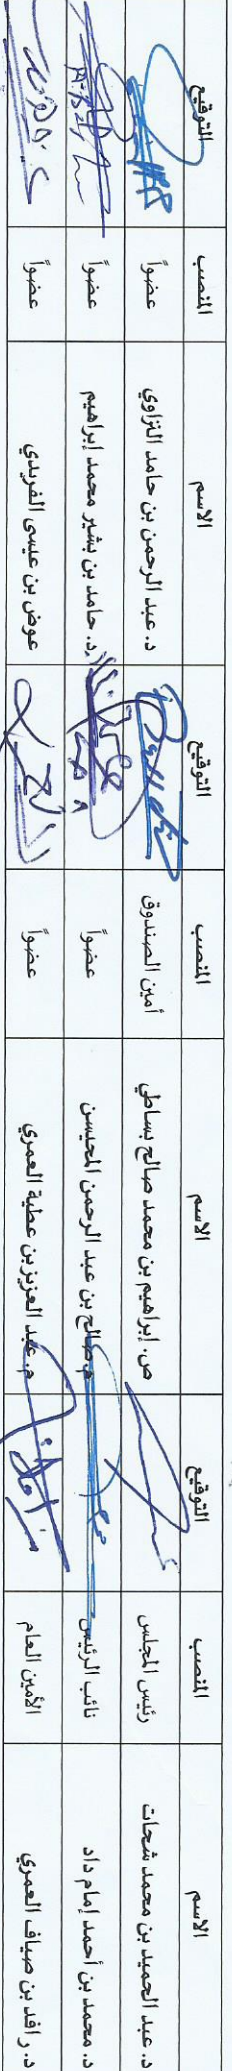 الاسم المنصب التوقيع الاسم المنصب التوقيع الاسم المنصب التوقيع
د. عبد الحميد بن محمد شحات رئيس المجلس ص. إبراهيم بن محمد صالح بساطي أمين الصندوق د. عبد الرحمن بن حامد النزاوي عضواً
د. محمد بن أحمد إمام داد نائب الرئيس م. صالح بن عبد الرحمن المحيسن عضواً د. حامد بن بشير محمد إبراهيم عضواً
د. رافد بن صياف العمري الأمين العام م. عبد العزيز بن عطية العمري عضواً عوض بن عيسى الفريدي عضواً